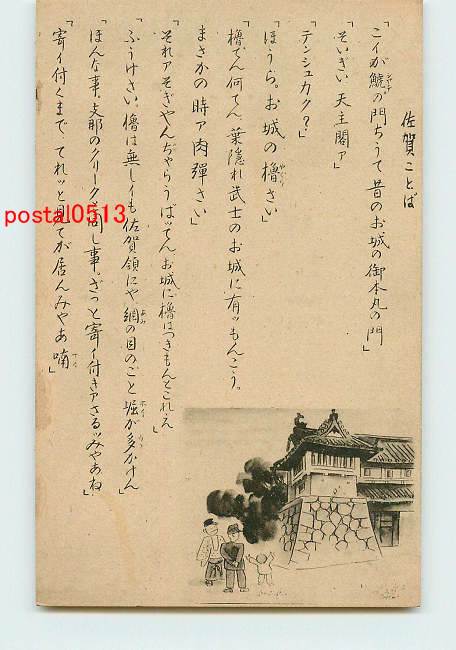 佐賀ことば
「こイが鯱の門ちうて昔のお城の御本丸の門」
「そいぎい 天主閣ア」
「テンシュカク?」
「ほうら。お城の櫓さい」
「櫓でん何てん、葉隠れ武士のお城に有ッもんこう。
まさかの時ア肉弾さい」
「それアそぎやんぢやらうばッてん、お城に櫓はつきもんとこれえ」
「ふうけさい、櫓は無しイも佐賀領にや網の目のごと堀が多かけん」
ほんな事、支那のクリークと同し事。ざっと寄イ付きアさるツみやあね」
「寄イ付くまで、てれッと見てが居んみやあ喃」
postal0513